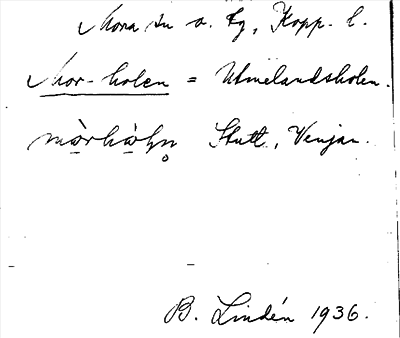 Mora sn o. tg, Kopp. l.
Mor-holen = Utmelandsholen.
mòrhòḷn̥ Stutt, Venjan.
B. Lindén 1936.